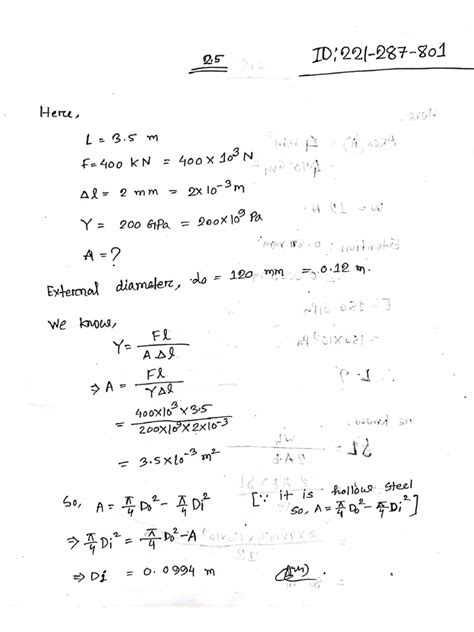 25
ID: 221-287-801
Here,
L = 3.5 m
F = 400 kN = 400 × 10³ N
Δl = 2 mm = 2×10⁻³ m
Y = 200 GPa = 200×10⁹ Pa
A = ?
External diameter, do = 120 mm = 0.12 m.
We know,
Y = Fl / A Δl
⇒ A = Fl / YΔl
= 400×10³×3.5 / 200×10⁹×2×10⁻³
= 3.5×10⁻³ m²
So, A = π/4 Do² - π/4 Di² [∵ it is hollow steel
so, A = π/4 Do² - π/4 Di²]
⇒ π/4 Di² = π/4 Do² - A
⇒ Di = 0.0994 m (Ans)